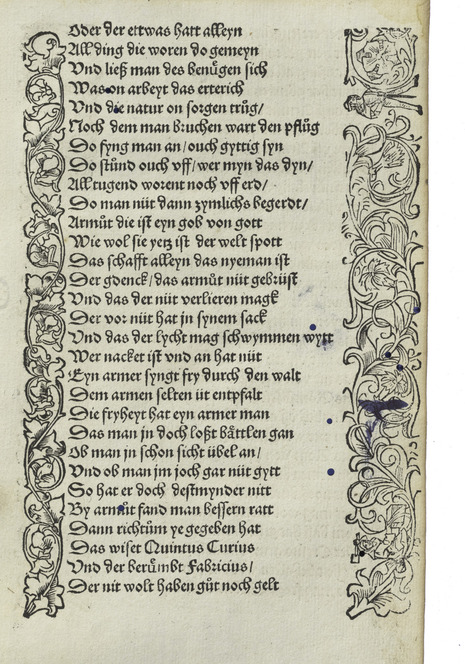 Oder der ettwas hatt alleyn
All ding die woren do gemeyn
Vnd ließ man des benuͤgen sich
Was on arbeyt das erterich
Vnd die natur on sorgen truͤg/
Noch dem man bruchen wart den pfluͤg
Do fyng man an/ ouch gyttig syn
Do stuͤnd ouch vff/ wer myn das dyn/
All tugend worent noch vff erd/
Do man nüt dann zymlichs begerdt/
Armuͤt die ist eyn gob von gott
Wie wol sie yetz ist der welt spott
Das schafft alleyn das nyeman ist
Der gdenck/ das armuͤt nüt gebrüst
Vnd das der nüt verlieren magk
Der vor nüt hat jn synem sack
Vnd das der lycht mag schwymmen wytt
Wer nacket ist vnd an hat nüt
Eyn armer syngt fry durch den walt
Dem armen selten üt entpfalt
Die fryheyt hat eyn armer man
Das man jn doch loßt baͤttlen gan
Ob man jn schon sicht übel an/
Vnd ob man jm joch gar nüt gytt
So hat er doch destmynder nitt
By armuͤt fand man bessern ratt
Dann richtuͤm ye gegeben hat
Das wiset Quintus Curius
Vnd der beruͤmbt Fabricius/
Der nit wolt haben guͤt noch gelt